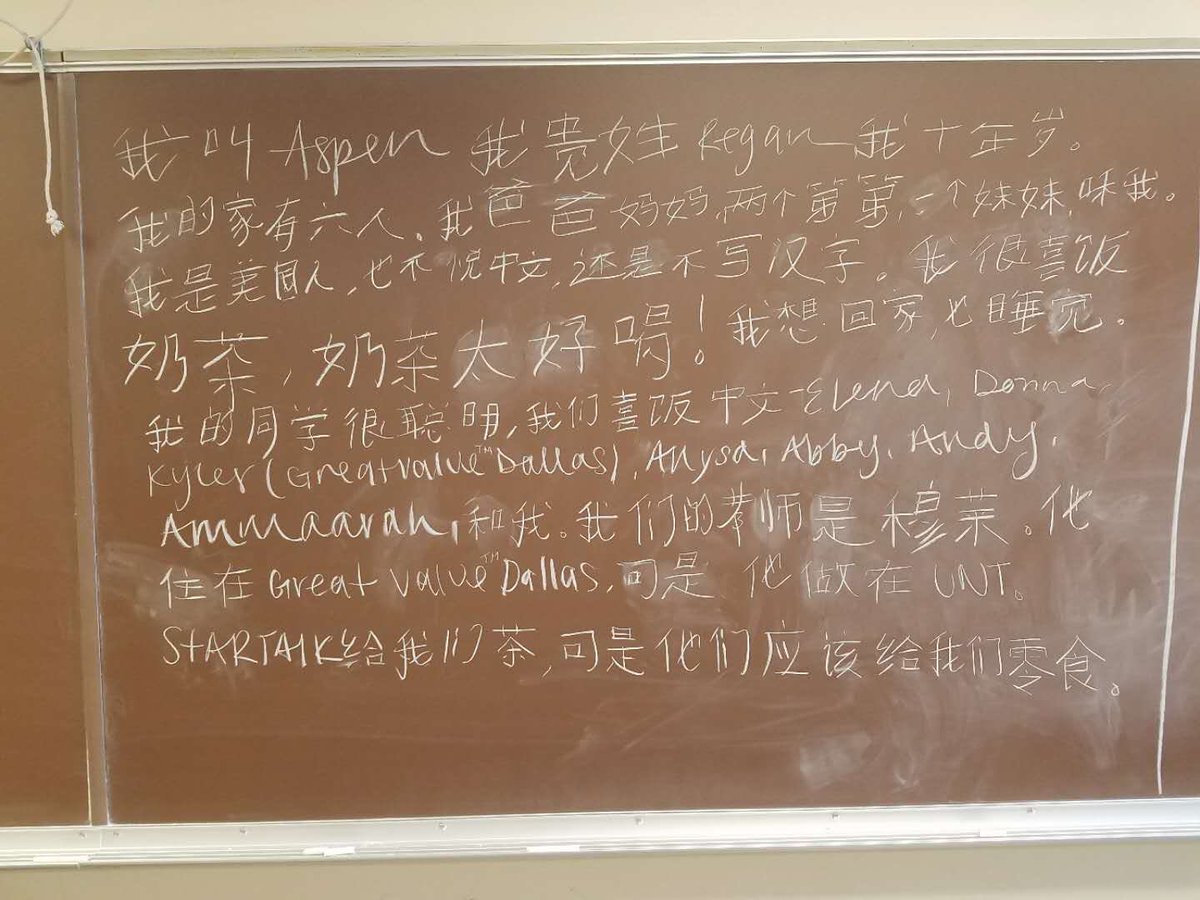 我叫 Aspen 我贵姓 Regan 我十年岁。
我的家有六人。我爸爸妈妈,两个第第,一个妹妹,咪我。
我是美国人,也不悦中文,还是不写汉字。我很喜饭
奶茶,奶茶太好喝!我想回家,也睡觉。
我的同学很聪明,我们喜饭中文-Elena, Donna,
Kyler (Great value™ Dallas), Anysa, Abby, Andy,
Ammaarah, 和我。我们的老师是穆莱。他
住在 Great value™ Dallas,可是 他做在 UNT。
STARTALK给我们茶,可是他们应该给我们零食。